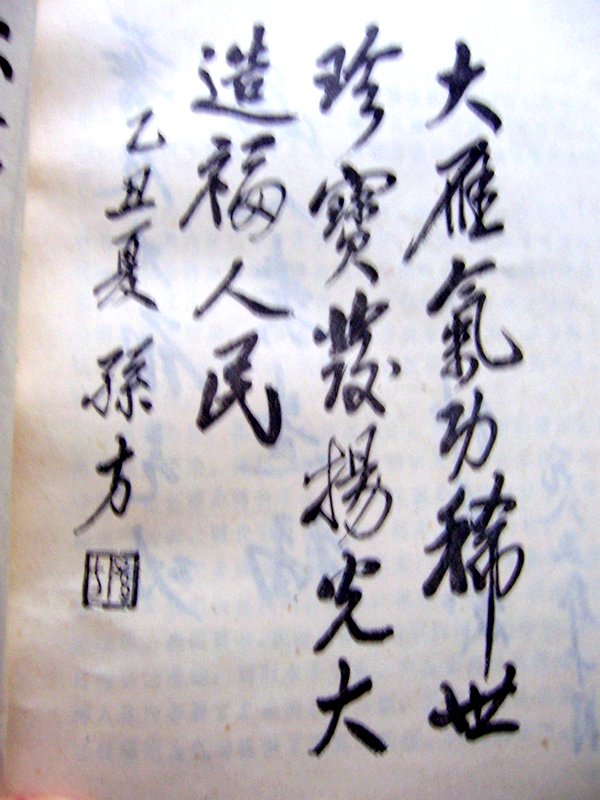 大雁氣功稀世
珍寶發揚光大
造福人民
乙丑夏 孫方